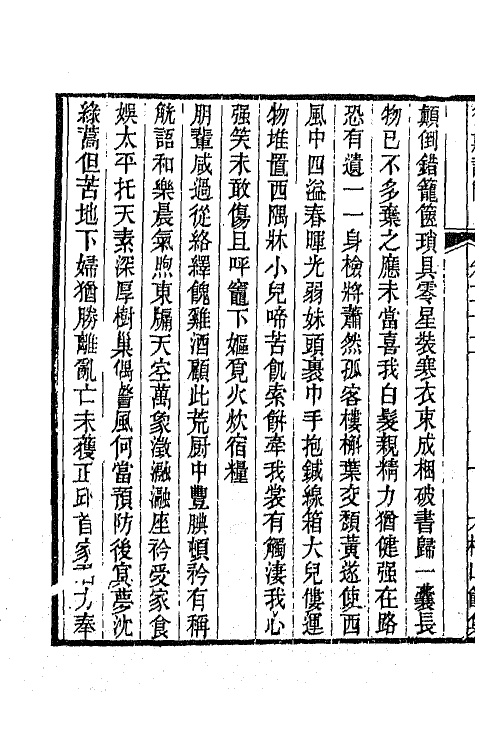 顛倒錯籠篋瑣具零星裝褰衣束成梱破書歸一囊長
物已不多棄之應未當喜我白髮親精力猶健强在路
恐有遺一一身檢將蕭然孤客樓槲葉交頽黃遂使西
風中四溢春暉光弱妹頭裹巾手抱鍼線箱大兒僂運
物堆置西隅牀小兒啼苦飢索餠牽我裳有觸淒我心
强笑未敢傷且呼竈下嫗覓火炊宿糧
朋輩咸過從絡繹餽雞酒顧此荒厨中豐腆頓矜有稱
觥語和樂晨氣煦東牖天空萬象澂灩灩座衿受家食
娛太平托天素深厚樹巢偶瞥風何當預防後寘夢沈
綠蒿但苦地下婦猶勝離亂亡未獲正邱首家 力奉